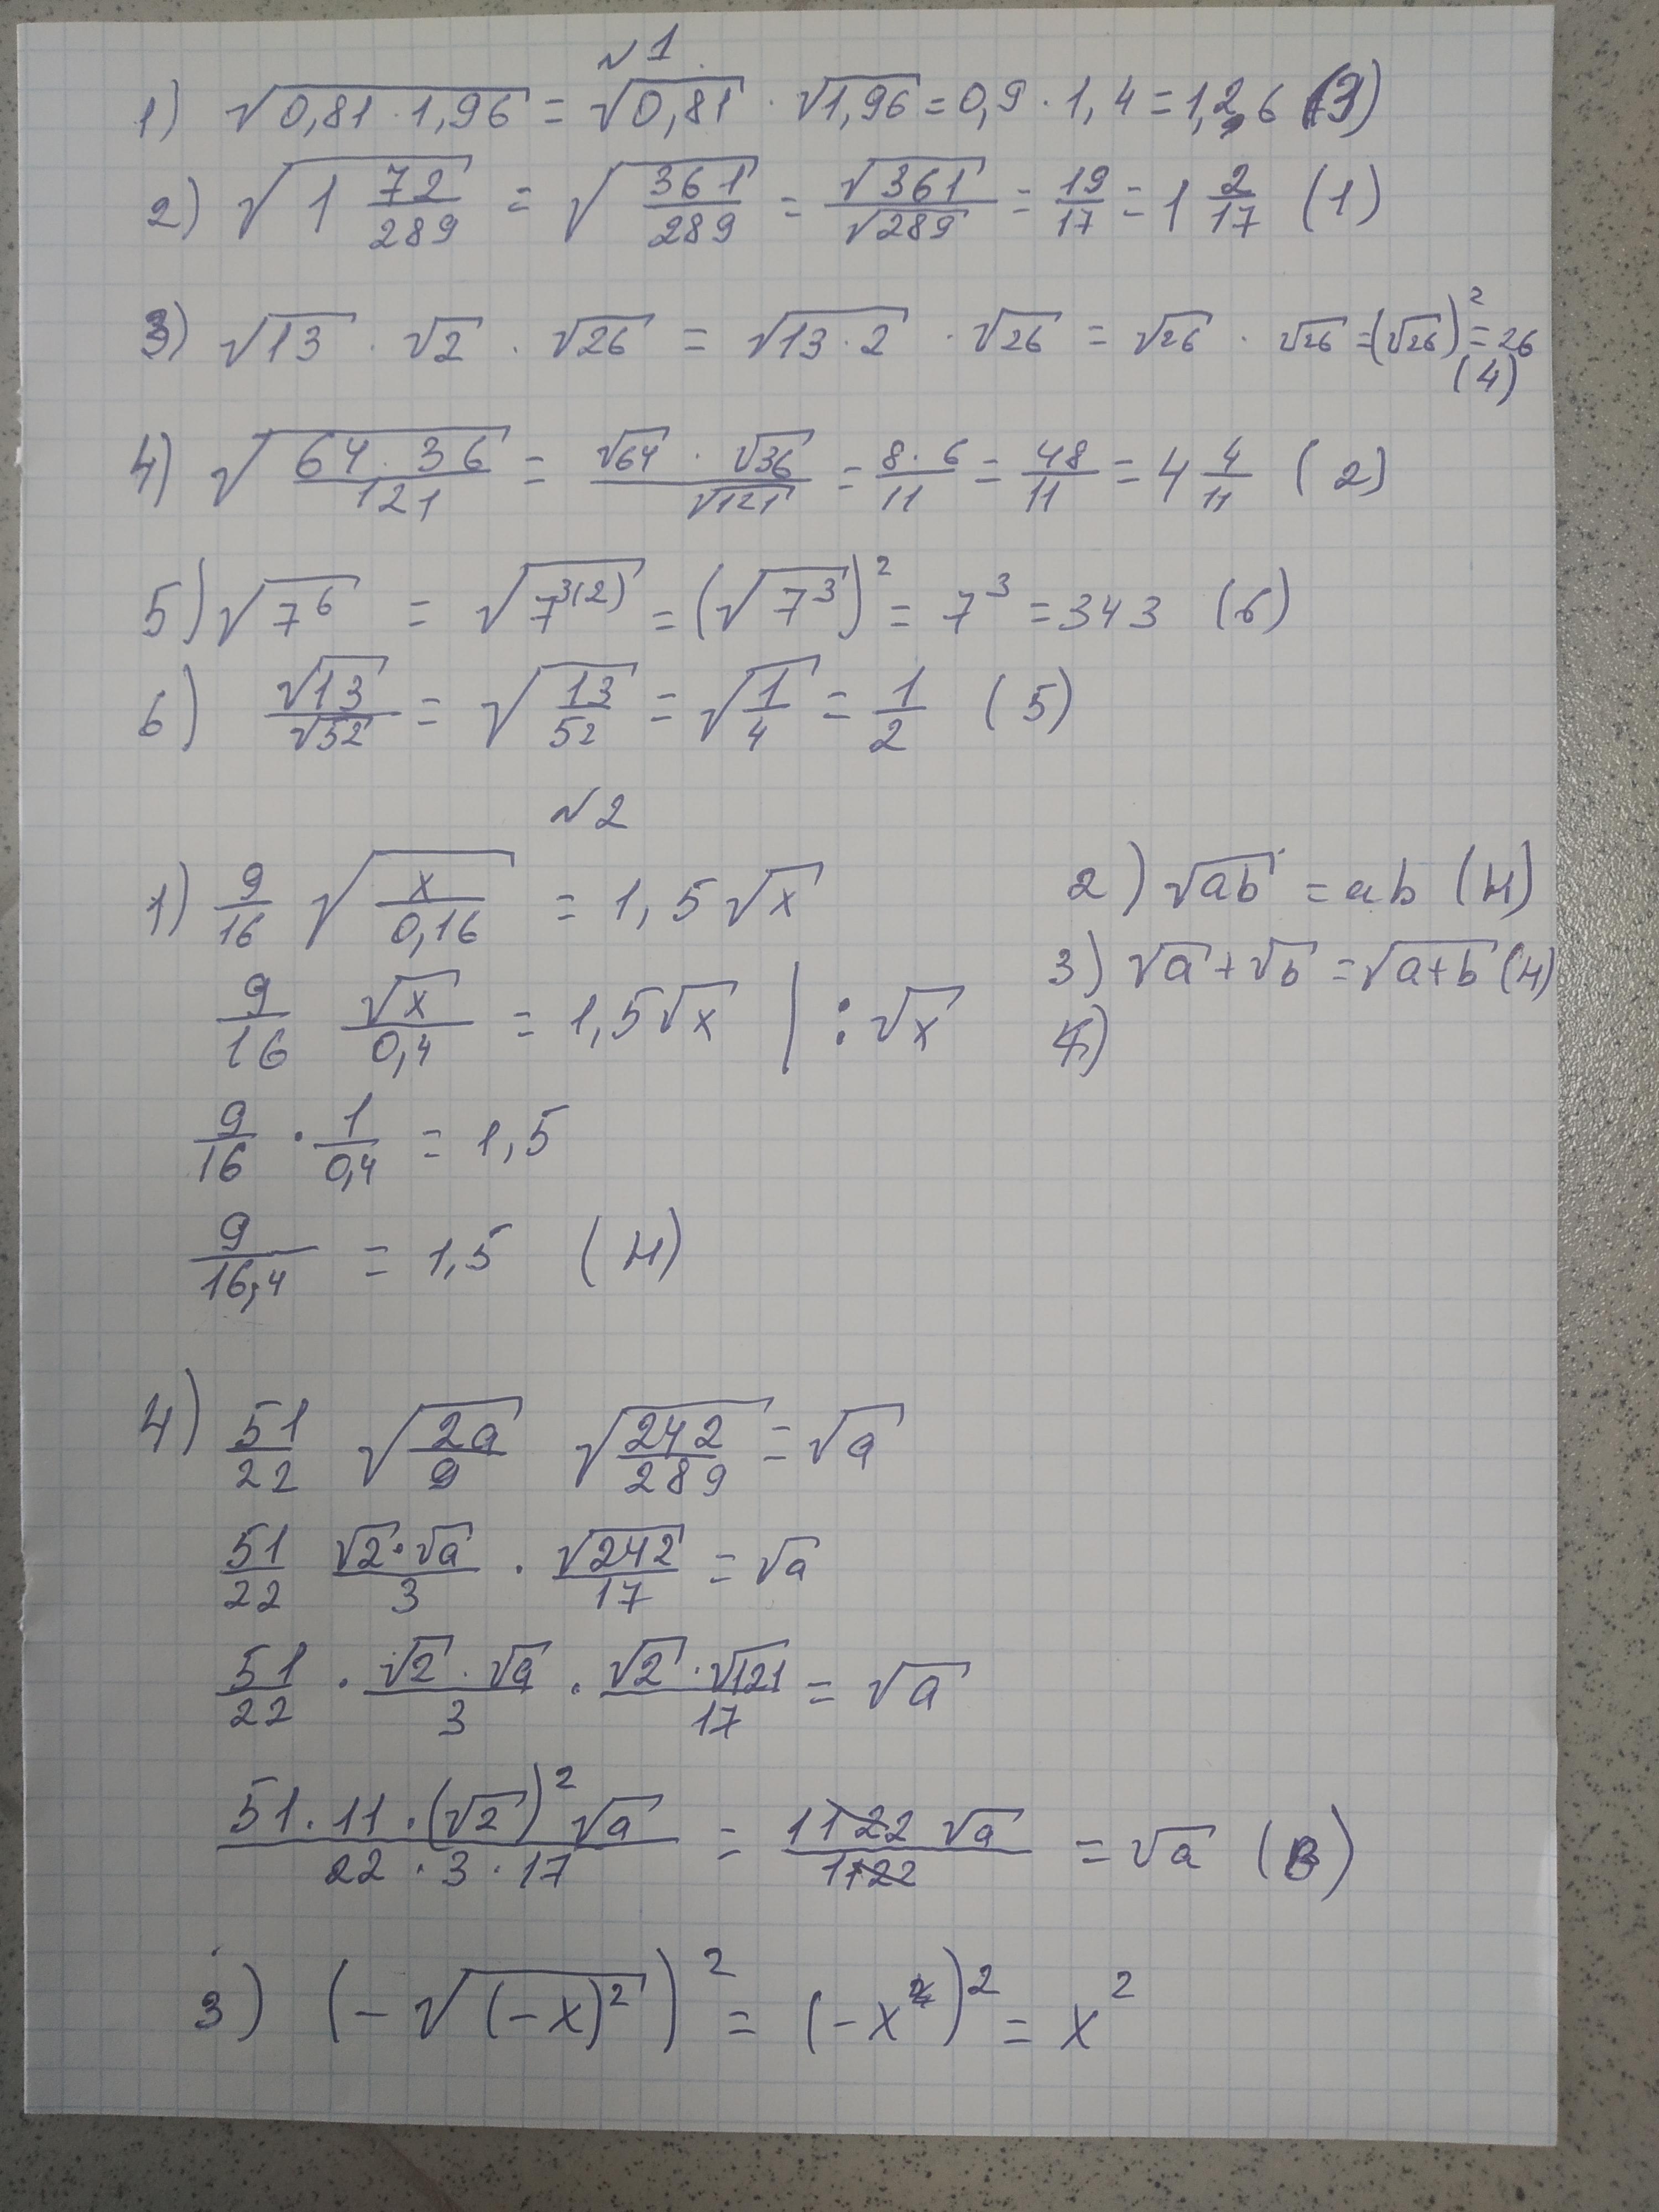 N1
1) √(0,81·1,96) = √0,81 · √1,96 = 0,9 · 1,4 = 1,26 (3)
2) √(1 72/289) = √(361/289) = √361/√289 = 19/17 = 1 2/17 (1)
3) √13 · √2 · √26 = √(13·2) · √26 = √26 · √26 = (√26)² = 26
(4)
4) √(64·36/121) = √64 · √36/√121 = 8·6/11 = 48/11 = 4 4/11 (2)
5) √7⁶ = √7³⁽²⁾ = (√7³)² = 7³ = 343 (6)
6) √13/√52 = √(13/52) = √(1/4) = 1/2 (5)
N2
1) 9/16 √(x/0,16) = 1,5√x
9/16 √x/0,4 = 1,5√x | : √x
9/16 · 1/0,4 = 1,5
9/16,4 = 1,5 (Н)
2) √ab = ab (Н)
3) √a + √b = √(a+b) (Н)
4) 51/22 √(2a/9) √(242/289) = √a
51/22 √2·√a/3 · √242/17 = √a
51/22 · √2·√a/3 · √2·√121/17 = √a
51·11·(√2)²√a/22·3·17 = 1122√a/1122 = √a (В)
3) (-√(-x)²)² = (-x)² = x²